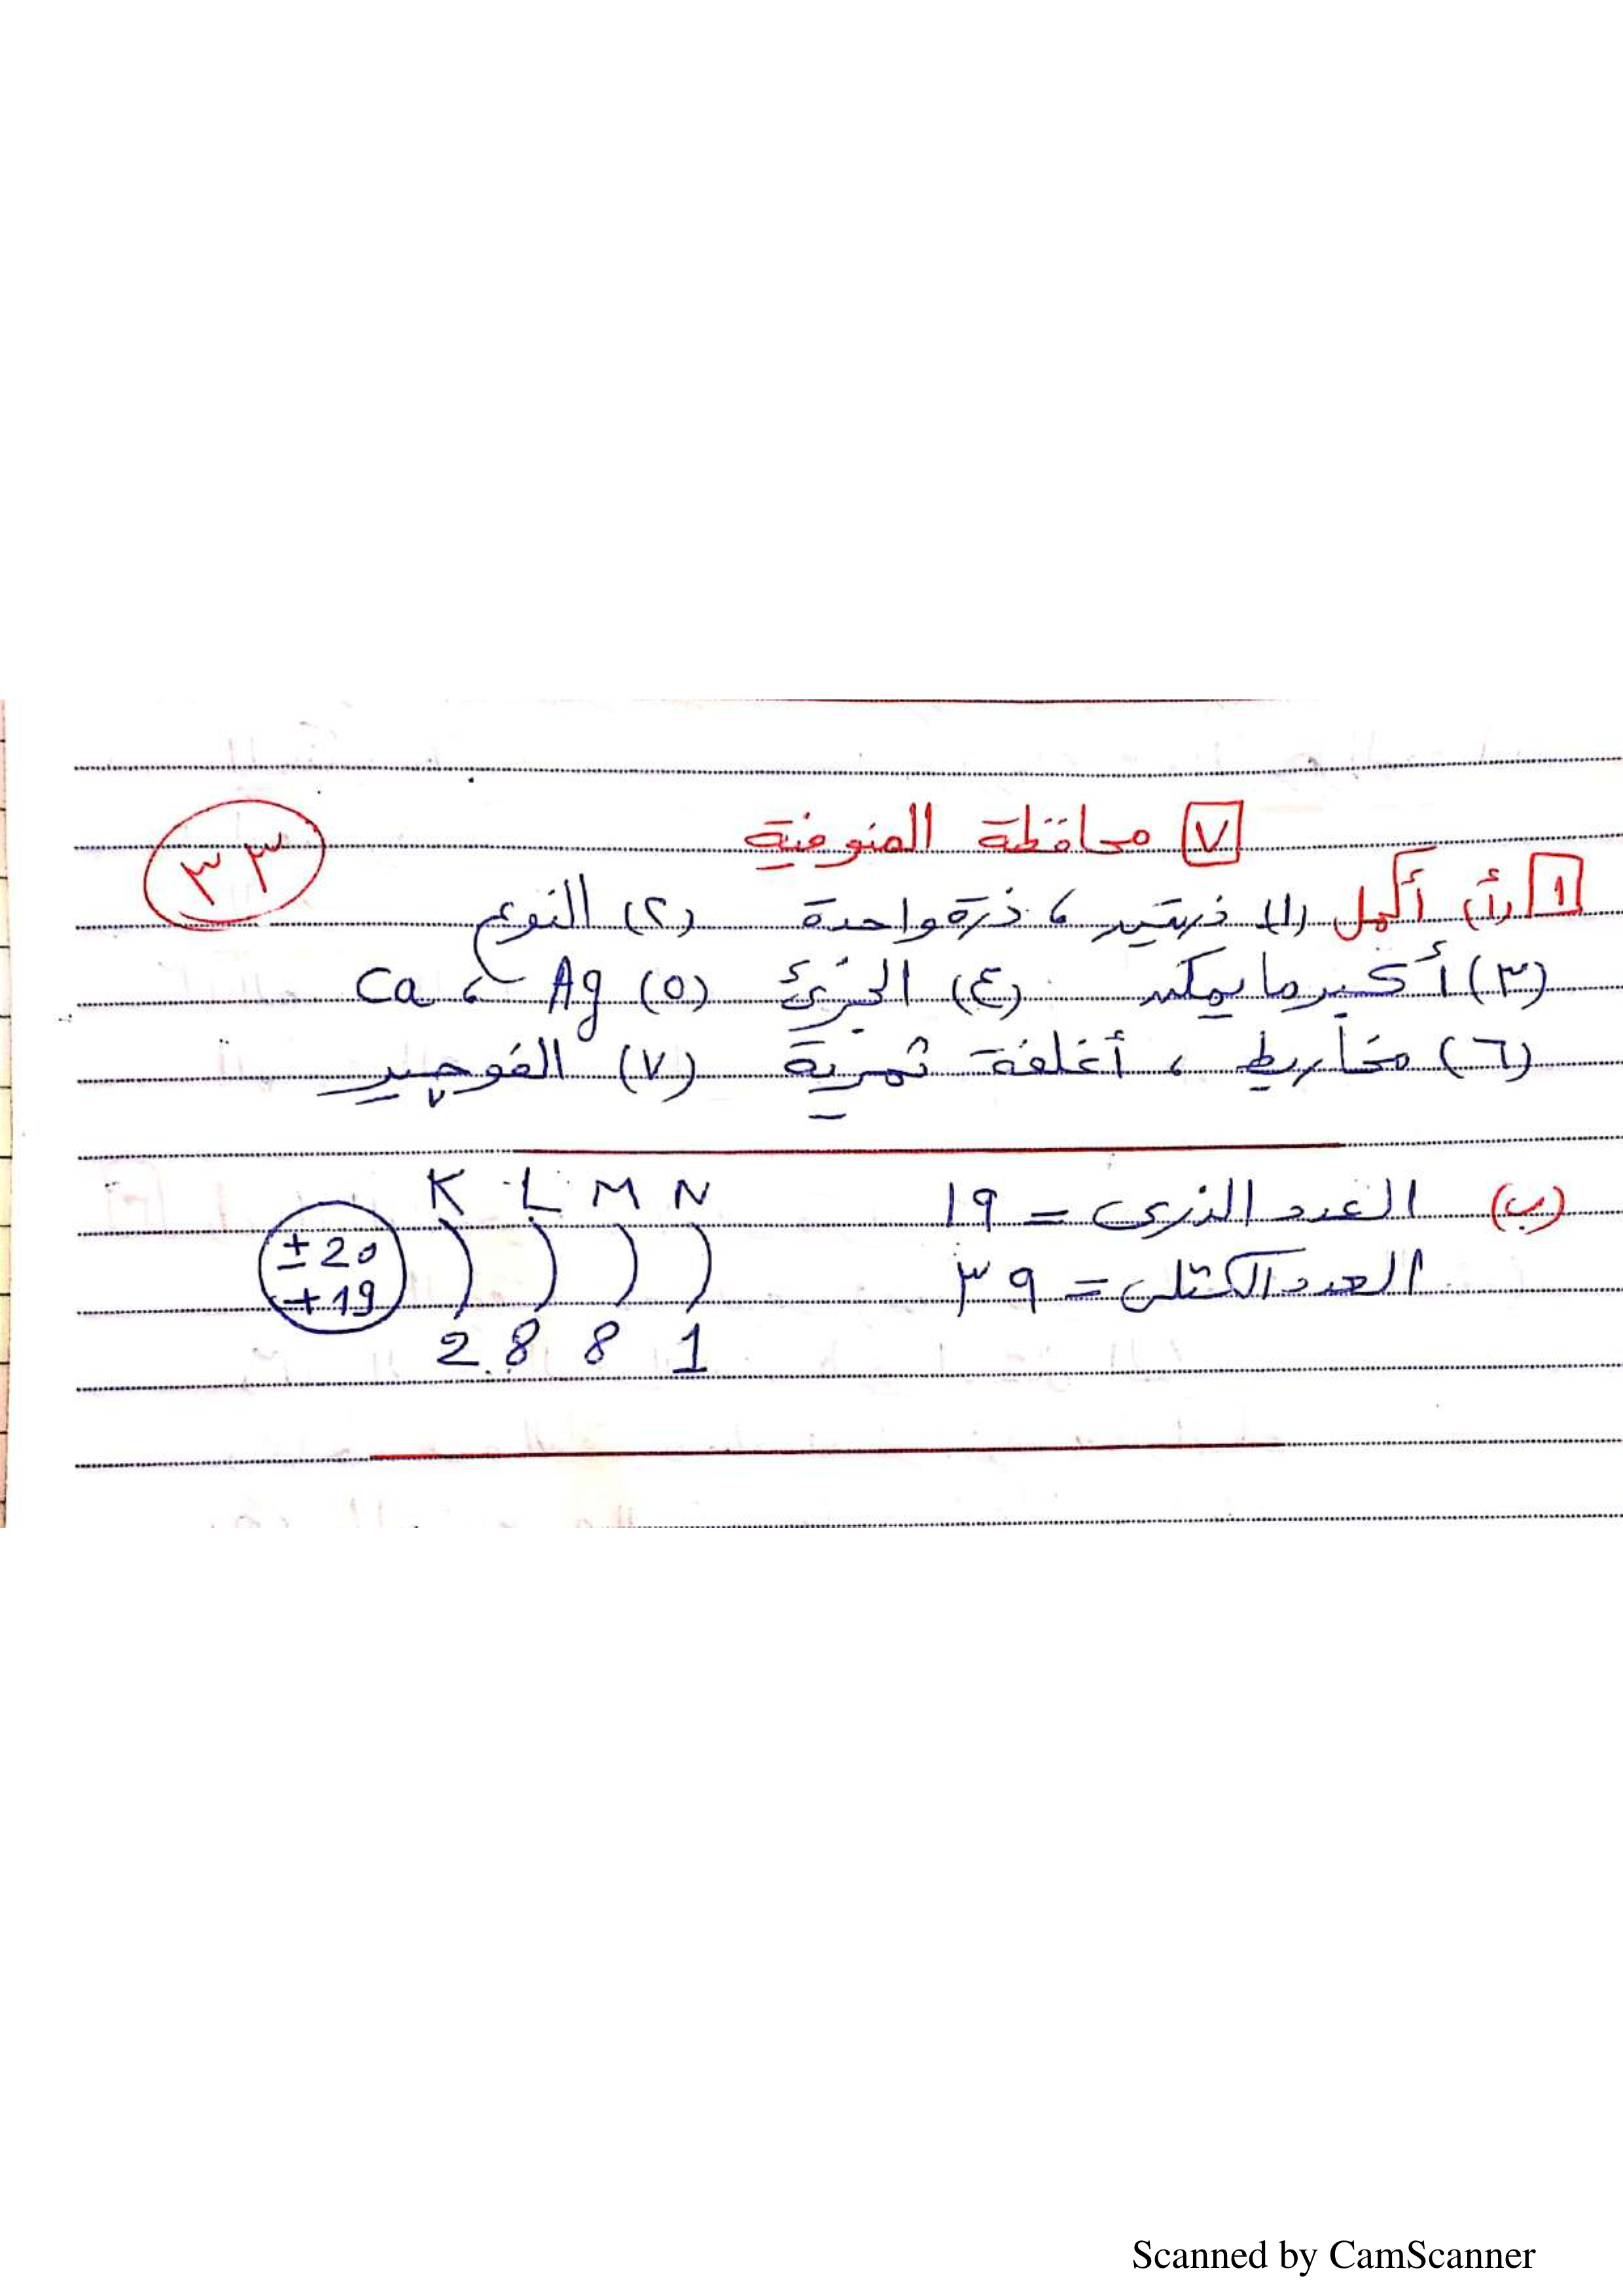 ٧ محافظة المنوفية
٣٣
١ (أ) أكمل (١) ذرتين ، ذرة واحدة (٢) النوع
(٣) أكبر ما يمكن (٤) الجزئ (٥) Ag ، Ca
(٦) مخاريط ، أغلفة ثمرية (٧) الفوچير
(ب) العدد الذرى = ١٩
العدد الكتلى = ٣٩
K L M N
± 20
+ 19
2 8 8 1
Scanned by CamScanner